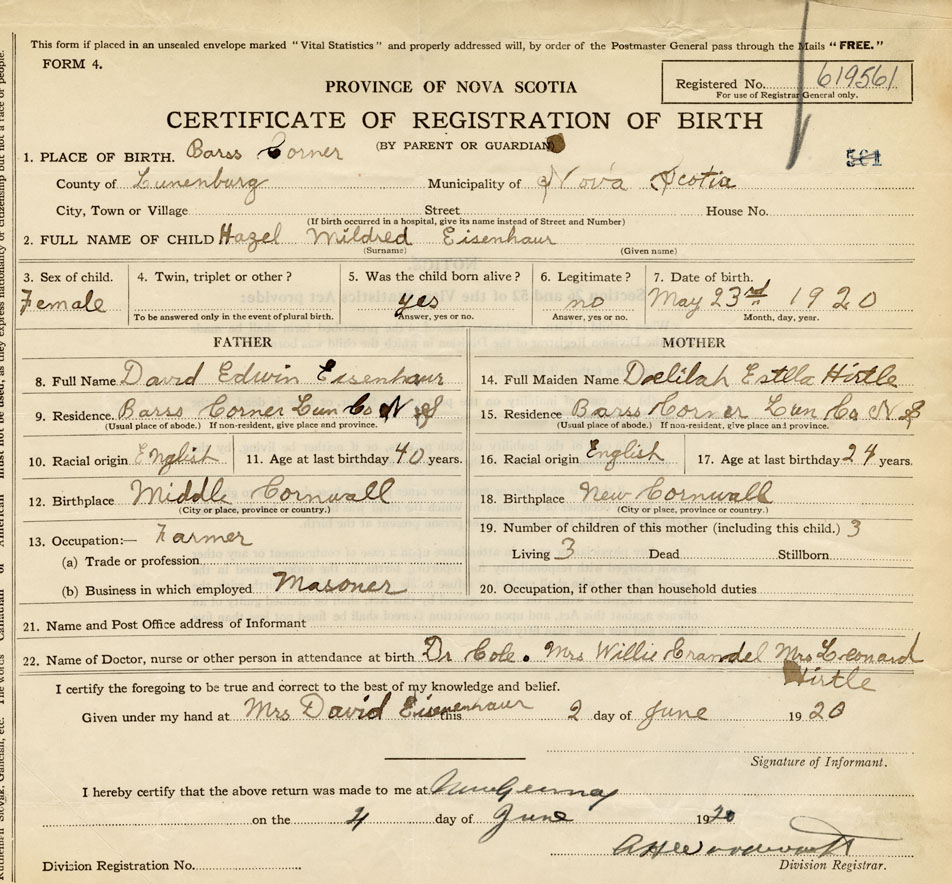 This form if placed in an unsealed envelope marked "Vital Statistics" and properly addressed will, by order of the Postmaster General pass through the Mails "FREE."
FORM 4.
Registered No. 619561
For use of Registrar General only.
PROVINCE OF NOVA SCOTIA
CERTIFICATE OF REGISTRATION OF BIRTH
(BY PARENT OR GUARDIAN)
561
1. PLACE OF BIRTH. Barss Corner
County of Lunenburg Municipality of Nova Scotia
City, Town or Village Street House No.
(If birth occurred in a hospital, give its name instead of Street and Number)
2. FULL NAME OF CHILD Hazel Mildred Eisenhaur
(Surname) (Given name)
3. Sex of child. 4. Twin, triplet or other? 5. Was the child born alive? 6. Legitimate? 7. Date of birth.
Female yes no May 23rd 1920
To be answered only in the event of plural birth. Answer, yes or no. Answer, yes or no. Month, day, year.
FATHER MOTHER
8. Full Name David Edwin Eisenhaur 14. Full Maiden Name Delilah Estella Hirtle
9. Residence Barss Corner Lun Co N S 15. Residence Barss Corner Lun Co N S
(Usual place of abode.) If non-resident, give place and province. (Usual place of abode.) If non-resident, give place and province.
10. Racial origin English 11. Age at last birthday 40 years. 16. Racial origin English 17. Age at last birthday 24 years.
12. Birthplace Middle Cornwall 18. Birthplace New Cornwall
(City or place, province or country.) (City or place, province or country.)
13. Occupation:— Farmer 19. Number of children of this mother (including this child.) 3
(a) Trade or profession Living 3 Dead Stillborn
(b) Business in which employed Masoner 20. Occupation, if other than household duties
21. Name and Post Office address of Informant
22. Name of Doctor, nurse or other person in attendance at birth Dr Cole. Mrs Willie Crandel Mrs Leonard
Hirtle
I certify the foregoing to be true and correct to the best of my knowledge and belief.
Given under my hand at Mrs David Eisenhaur this 2 day of June 1920
Signature of Informant.
I hereby certify that the above return was made to me at New Germany
on the 4 day of June 1920
Division Registration No. Division Registrar.